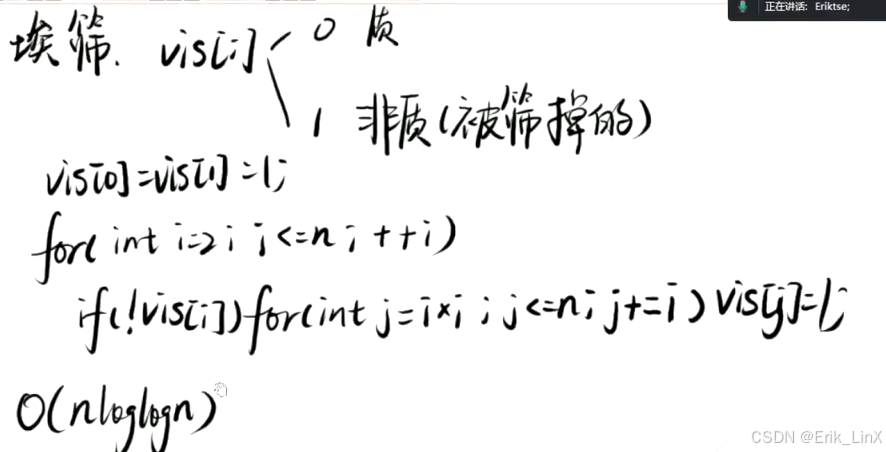 正在讲话: Eriktse;
埃筛. vis[i] 0 质
1 非质(被筛掉的)
vis[0]=vis[1]=1;
for(int i=2; i<=n; ++i)
if(!vis[i])for(int j=i×i; j<=n; j+=i) vis[j]=1;
O(nloglogn)
CSDN @Erik_LinX